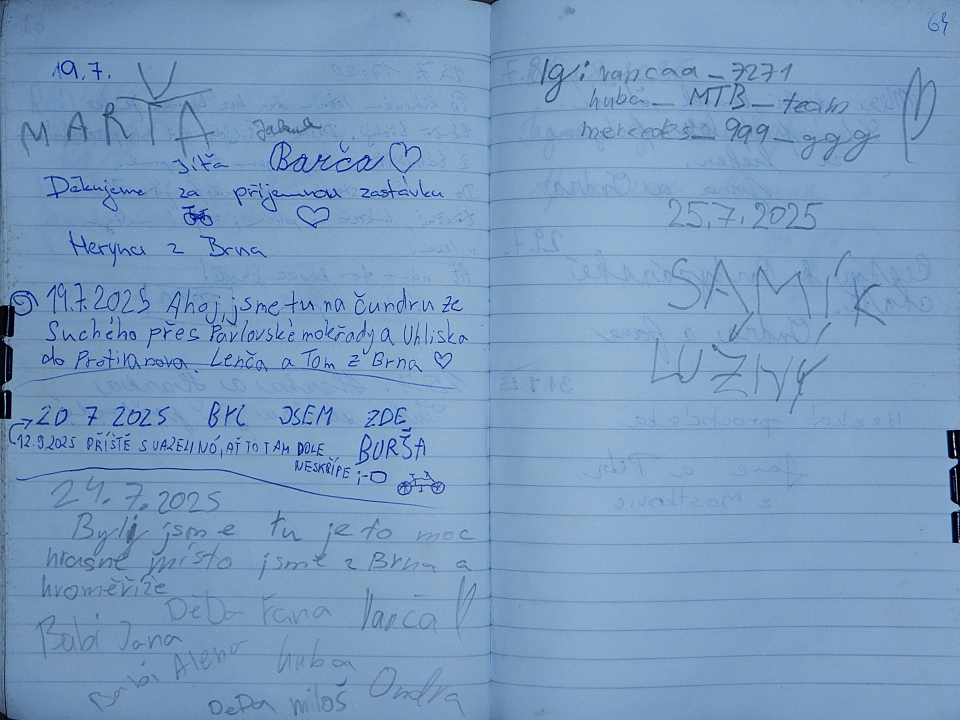 19.7.
MARŤA Jakub
Jíťa Barča
Děkujeme za příjemnou zastávku
z Brna
19.7.2025 Ahoj, jsme tu na čundru ze
Suchého přes Pavlovské mokřady a Uhliska
do Protivanova. Lenča a Tom z Brna
20.7.2025 BYL JSEM ZDE
BORŠA
12.9.2025 PŘÍŠTĚ S VAZELINÓ, AŤ TO TAM DOLE
NESKŘÍPE ;-O
24.7.2025
Byli jsme tu je to moc
hrasné místo jsme z Brna a
kroměříže
DěDa Fana Vanča
Babi Jana
Babi Alena kuba
DěDa miloš Ondra
64
Ig: vancaa_7271
kuba_MTB_team
mercedes_999_ggg
25.7.2025
SAMÍK
LUŽNÝ